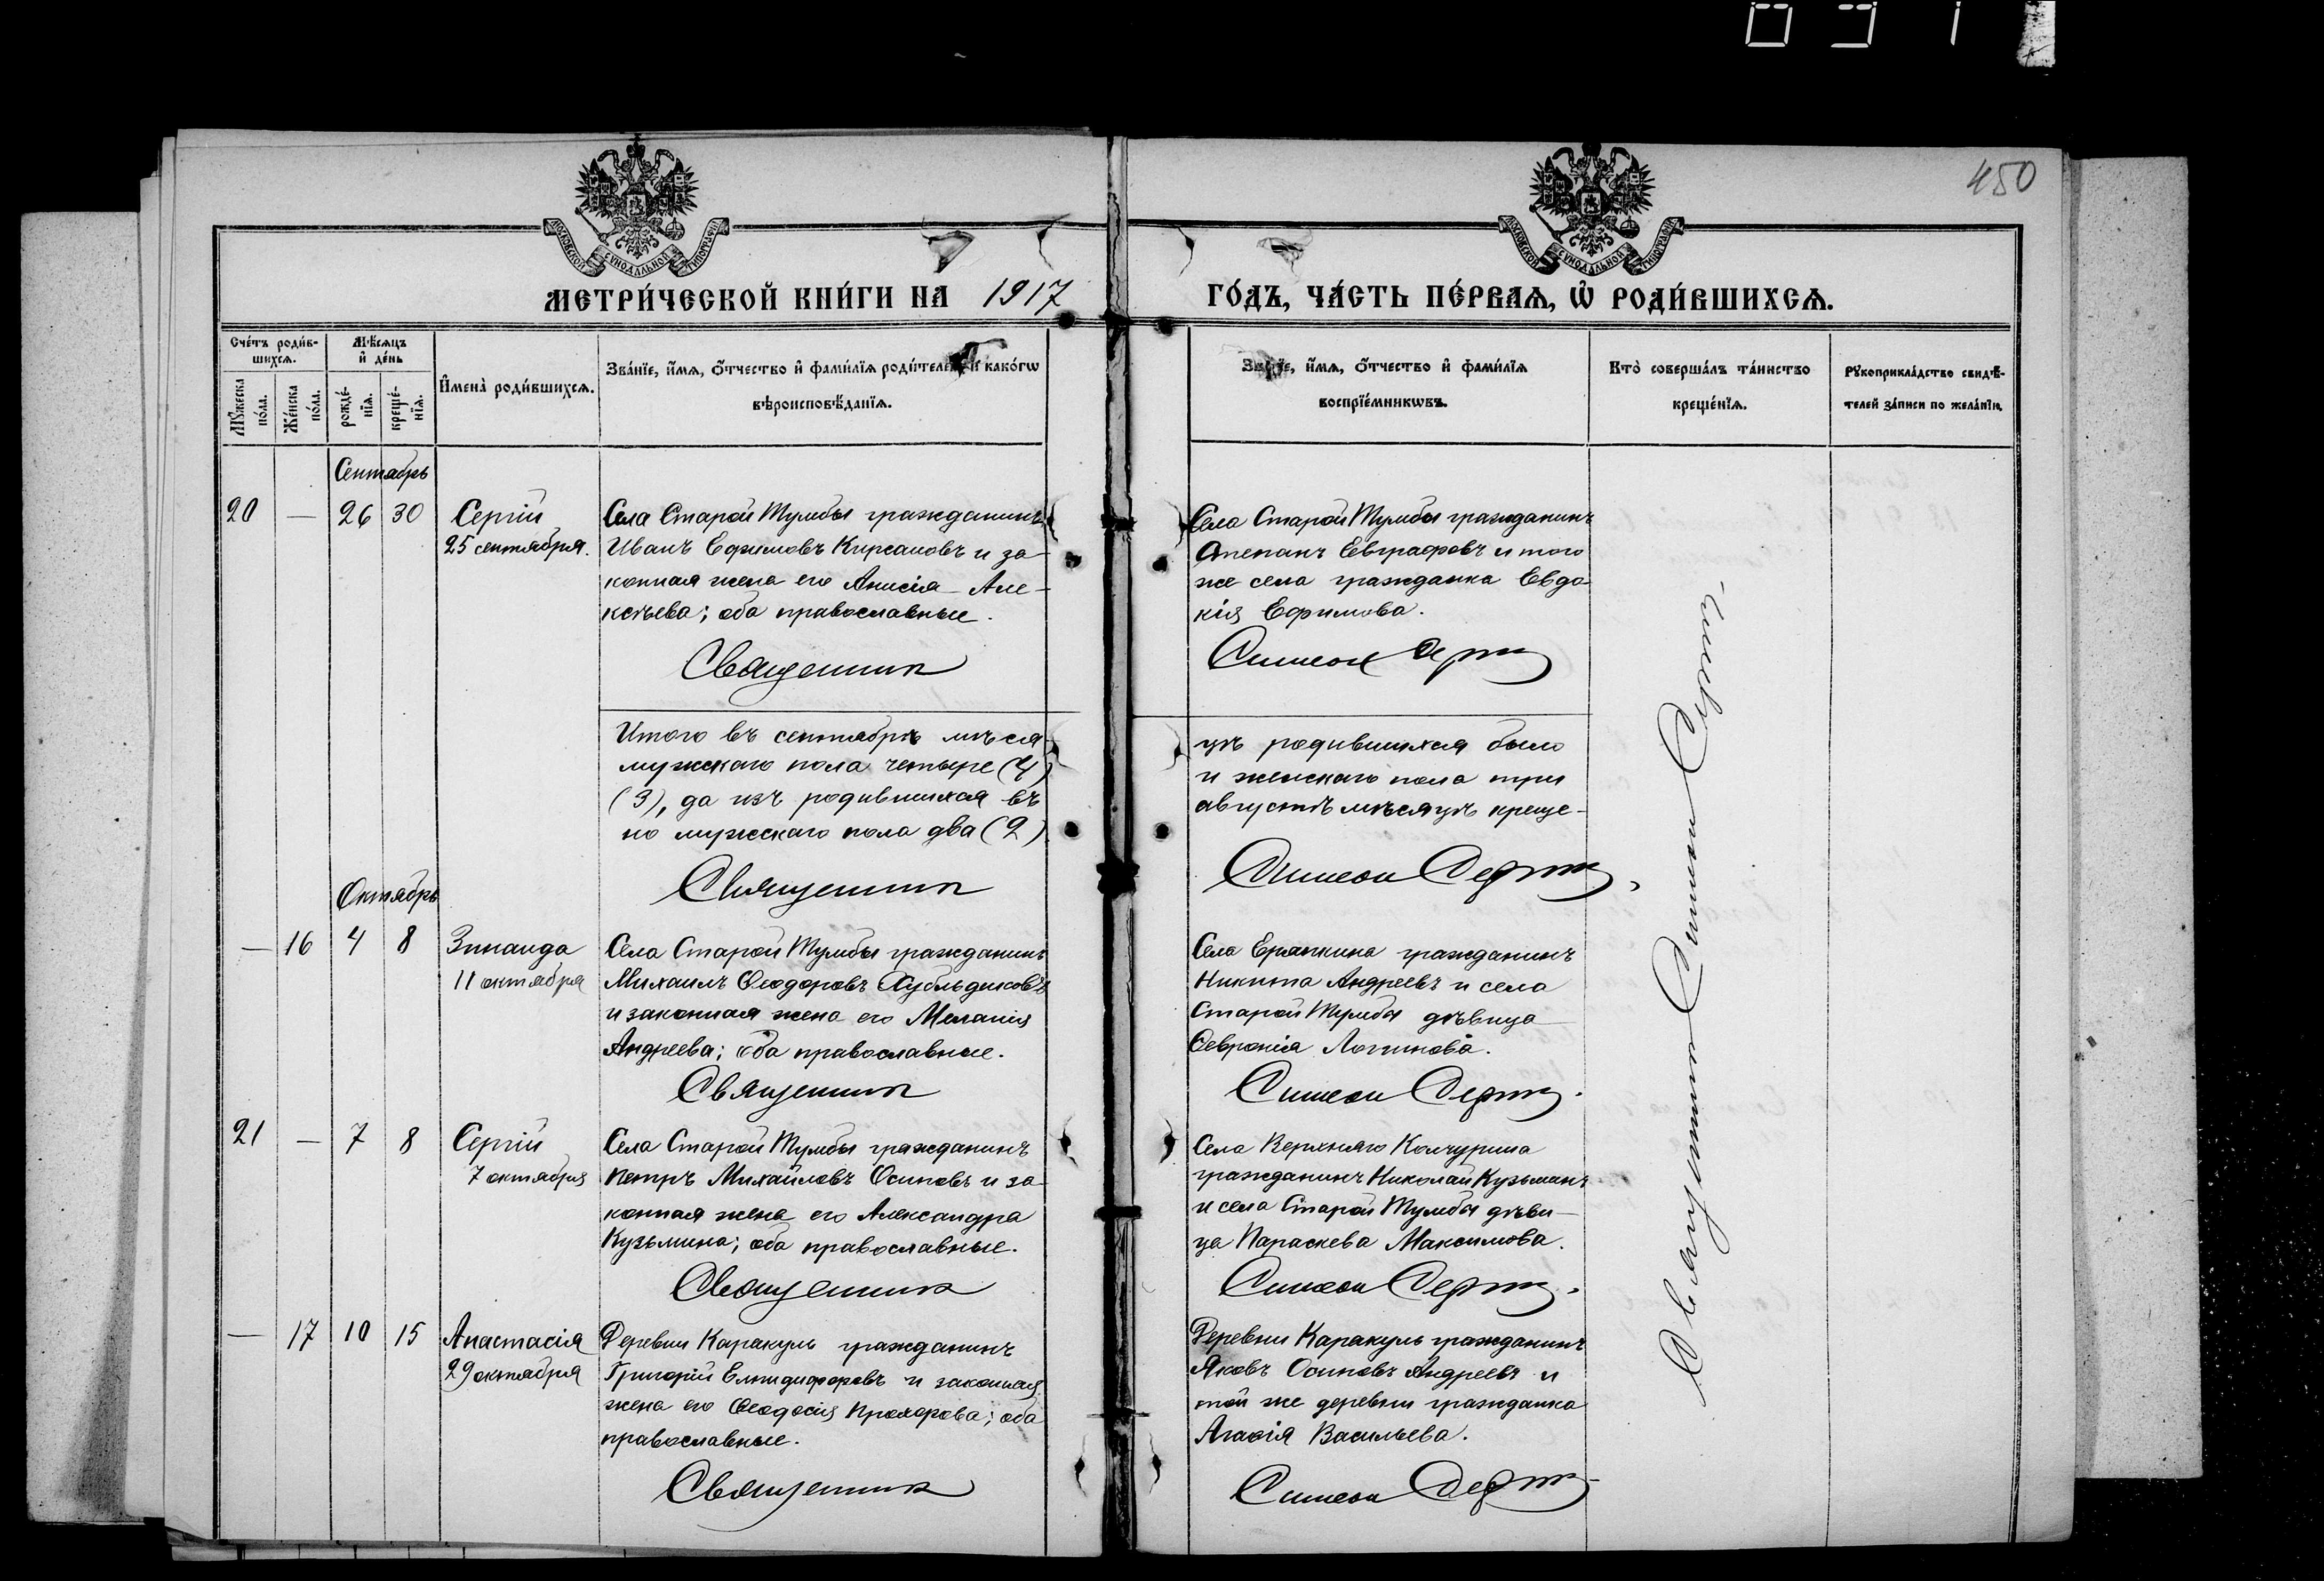 450
МОСКОВСКОЙ СУНОДАЛЬНОЙ ТИПОГРАФІИ
МОСКОВСКОЙ СУНОДАЛЬНОЙ ТИПОГРАФІИ
МЕТРИ́ЧЕСКОЙ КНИ́ГИ НА 1917 ГО́ДЪ, ЧА́СТЬ ПЕ́РВАѦ, Ѡ҆ РОДИ́ВШИХСѦ.
Сче́тъ роди́в-
шихсѧ.
Мѣ́сѧцъ
и҆ де́нь
Мꙋ́жеска
по́ла.
Же́нска
по́ла.
рожде́-
нїѧ.
креще́-
нїѧ.
И҆мена̀ роди́вшихсѧ.
Зва́нїе, и҆́мѧ, ѻ҆́тчество и҆ фами́лїѧ роди́телей и҆ како́гѡ
вѣроисповѣ́данїѧ.
Зва́нїе, и҆́мѧ, ѻ҆́тчество и҆ фами́лїѧ
воспрїе́мникѡвъ.
Кто̀ соверша́лъ та́инство
креще́нїѧ.
Рꙋкоприкла́дство свидѣ́-
телей за́писи по жела́нїю.
Сентябрь
20 — 26 30 Сергій
25 сентября.
Села Старой Тумбы гражданинъ
Иванъ Ефимовъ Кирсановъ и за-
конная жена его Анисія Але-
ксѣева; оба православные.
Священникъ
Села Старой Тумбы гражданинъ
Степанъ Евграфовъ и того
же села гражданка Евдо-
кія Ефимова.
Симеон
Итого въ сентябрѣ мѣся-
мужскаго пола четыре (4)
(3), да изъ родившихся въ
но мужскаго пола два (2)
Священник
цѣ родившихся было
и женскаго пола три
августѣ мѣсяцѣ креще-
Симеон
Октябрь
— 16 4 8 Зинаида
11 октября
Села Старой Тумбы гражданинъ
Михаилъ Ѳеодоровъ
и законная жена его Меланія
Андреева; оба православные.
Священник
Села гражданинъ
Никита Андреевъ и села
Старой Тумбы дѣвица
Ѳевронія Логинова.
Симеон
21 — 7 8 Сергій
7 октября
Села Старой Тумбы гражданинъ
Петръ Михайловъ Осиповъ и за-
конная жена его Александра
Кузьмина; оба православные.
Священник
Села Верхняго Кончурина
гражданинъ Николай Кузьминъ
и села Старой Тумбы дѣви-
ца Параскева Максимова.
Симеон
— 17 10 15 Анастасія
29 октября
Деревни Каракуль гражданинъ
Григорій Елпидифоровъ и законная
жена его Ѳеодосія Прохорова; оба
православные.
Священник
Деревни Каракуль гражданинъ
Яковъ Осиповъ Андреевъ и
той же деревни гражданка
Агафія Васильева.
Симеон
Священник Симеон